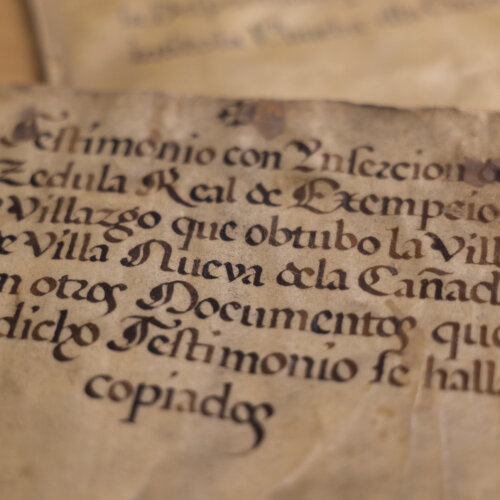 Testimonio con Ynsercion d
Zedula Real de Exempsio
Villazgo que obtubo la Vill
e Villa Nueva dela Cañad
n otros Documentos que
dicho Testimonio se hall
copiados